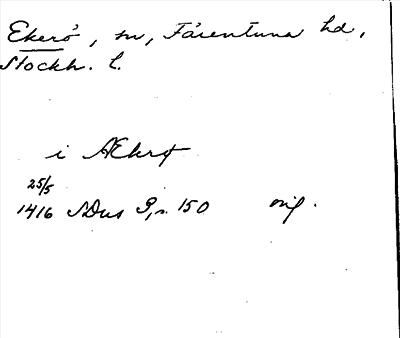 Ekerö, sn, Färentuna hd,
Stockh. l.
i Ækrø
25/5
1416 SDns 3, s. 150 orig.